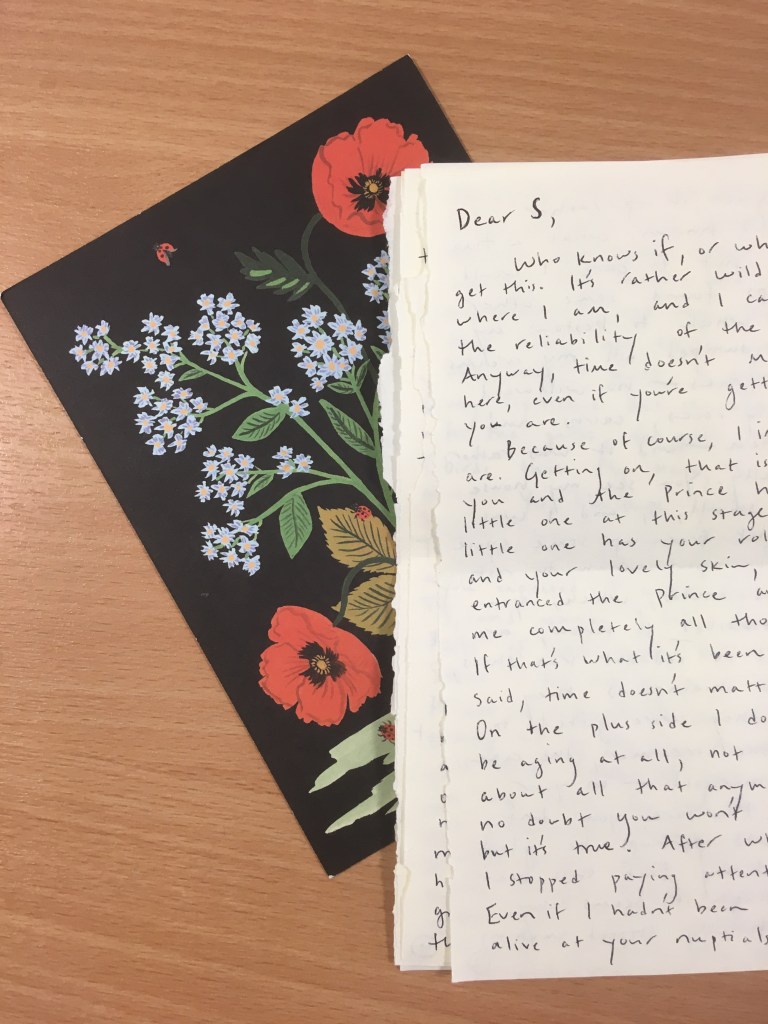 Dear S,
Who knows if, or wh
get this. It's rather wild
where I am, and I ca
the reliability of the
Anyway, time doesn't m
here, even if you're gett
you are.
Because of course, I i
are. Getting on, that is
you and the Prince h
little one at this stage
little one has your ro
and your lovely skin,
entranced the Prince a
me completely all tho
If that's what it's been
said, time doesn't matt
On the plus side I do
be aging at all, not
about all that anym
no doubt you won't
but it's true. After wh
I stopped paying attent
Even if I hadn't been
alive at your nuptials